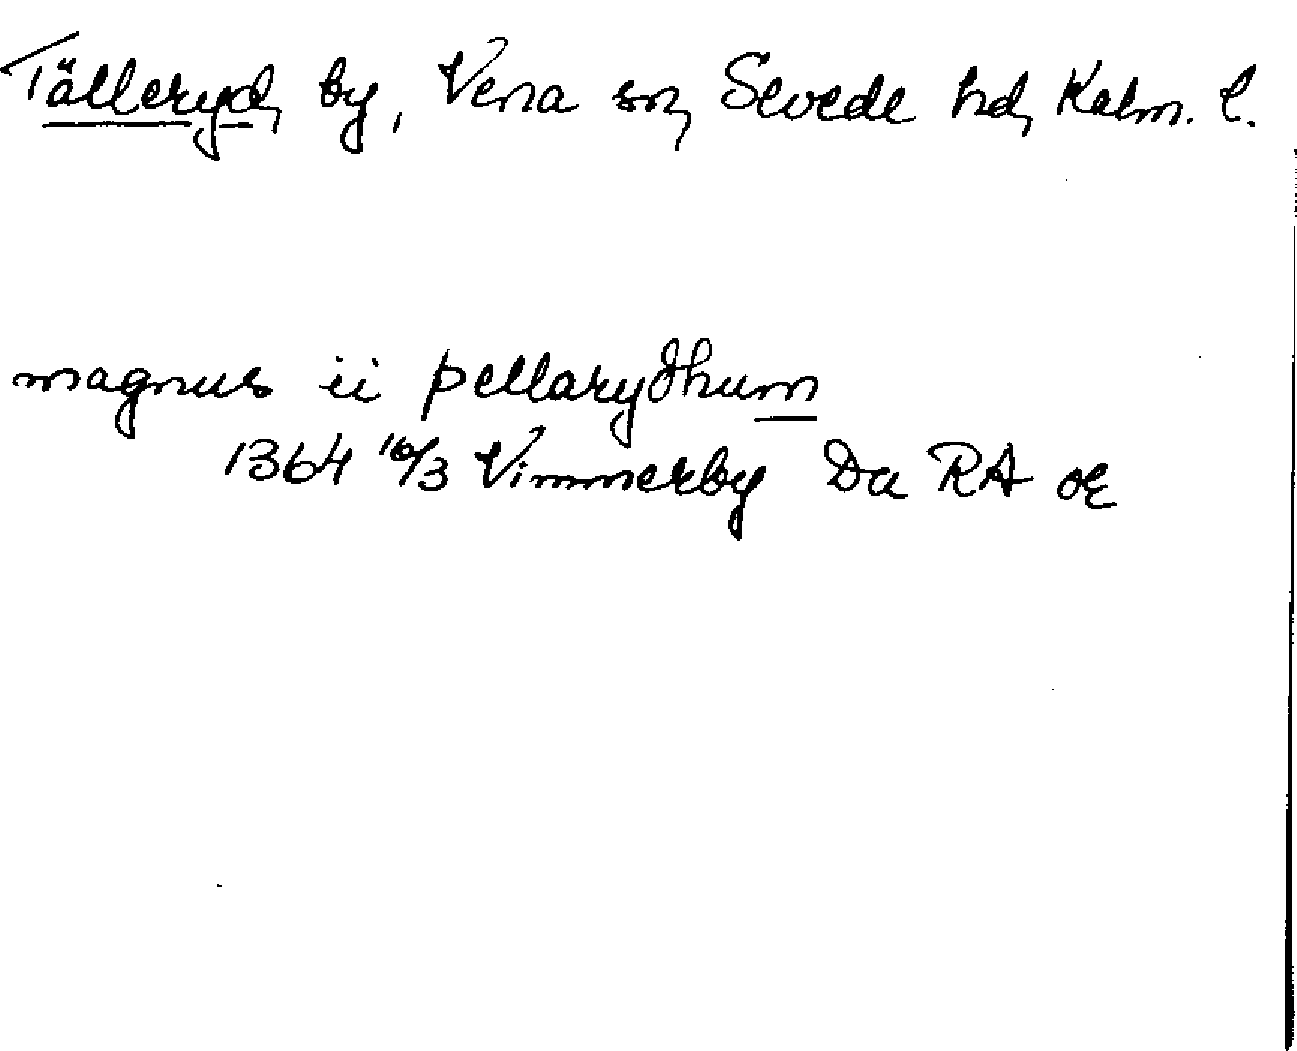 Tälleryd, by, Vena sn, Sevede hd, Kalm. l.
magnus ii þellarydhum
1364 16/3 Vimmerby Da RA or